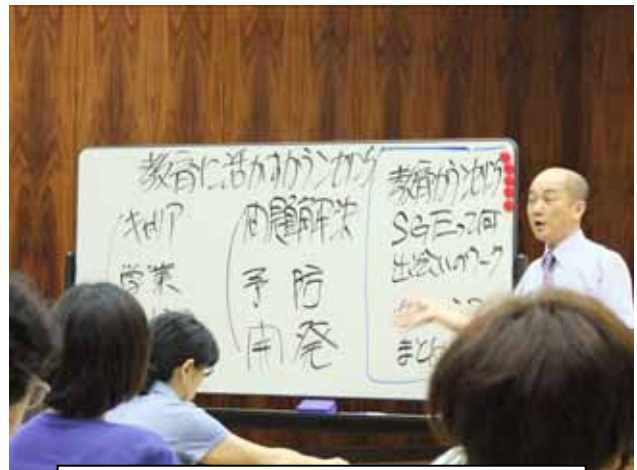 教育に活かすカウンセリング
キャリア
学業
問題解決
予防
開発
教育カウンセリング
SGEって何
出会いのワーク
まとめ